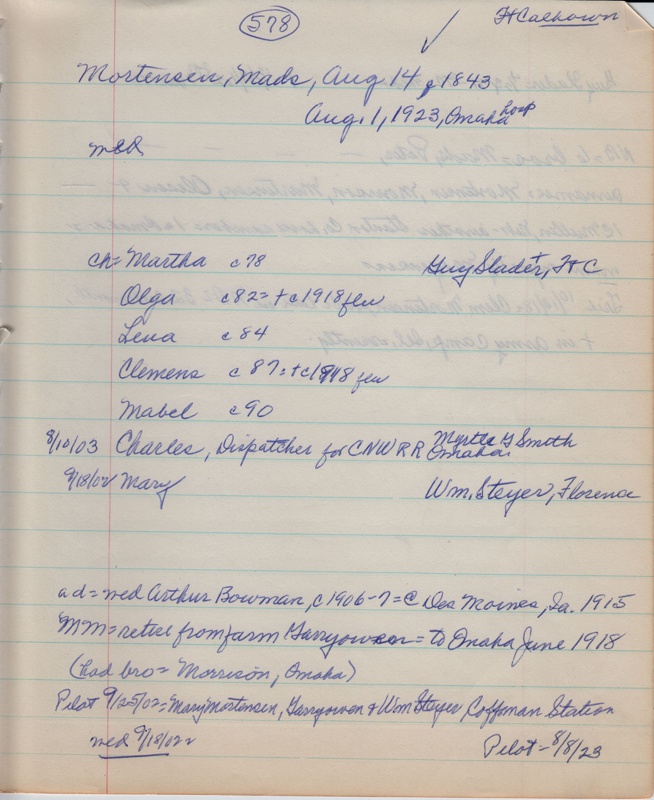 578
Ft Calhoun
Mortensen, Mads, Aug 14, 1843
Aug. 1, 1923, Omaha hosp
med
ch= Martha c78 Guy Slader+, Ft C
Olga c82=+c1918 flu
Lena c84
Clemens c87=+c1918 flu
Mabel c90
8/10/03 Charles, Dispatcher for CNW RR Omaha Myrtle G Smith
9/18/02 Mary Wm. Steyer, Florence
ad=med Arthur Bowman, c1906-7=@ Des Moines, Ia. 1915
MM=retire from farm Garryowen=to Omaha June 1918
(had bro= Morrison, Omaha)
Pilot 9/25/02=Mary Mortensen, Garryowen & Wm Steyer, Coffman Station
med 9/18/02
Pilot-8/8/23